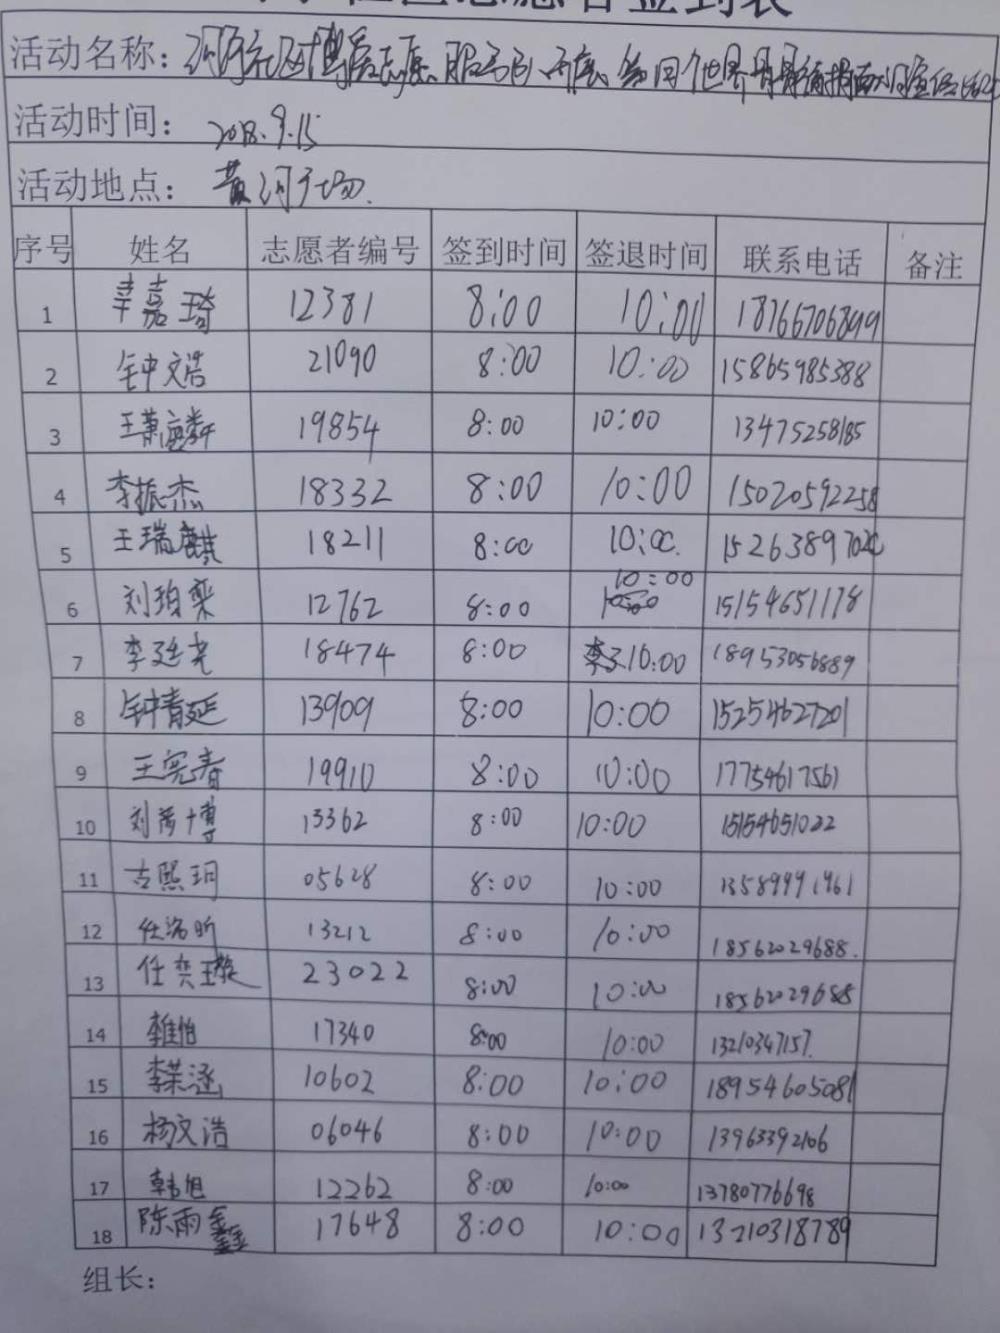 志愿者签到表
活动名称：河
活动时间：2018.9.15
活动地点：黄河广场.
序号 姓名 志愿者编号 签到时间 签退时间 联系电话 备注
1 辛嘉琦 12381 8:00 10:00 18766706899
2 钟文浩 21090 8:00 10:00 15865985388
3 王萧麟 19854 8:00 10:00 13475258185
4 李振杰 18332 8:00 10:00 15020592258
5 王瑞麒 18211 8:00 10:00. 1526389702
6 刘珀 12762 8:00 10:00 15154651178
7 李廷光 18474 8:00 10:00 18953056889
8 钟青延 13909 8:00 10:00 15254627201
9 王宪春 19910 8:00 10:00 17754617561
10 刘博 13362 8:00 10:00 15154651022
11 古熙玥 05628 8:00 10:00 13589991961
12 任洺昕 13212 8:00 10:00 18562029688.
13 任奕璇 23022 8:00 10:00 18562029688
14 李维怡 17340 8:00 10:00 13210347157.
15 李荣涵 10602 8:00 10:00 18954605081
16 杨文浩 06046 8:00 10:00 13963392106
17 韩旭 12262 8:00 10:00 13780776698
18 陈雨鑫 17648 8:00 10:00 13210318789
组长：